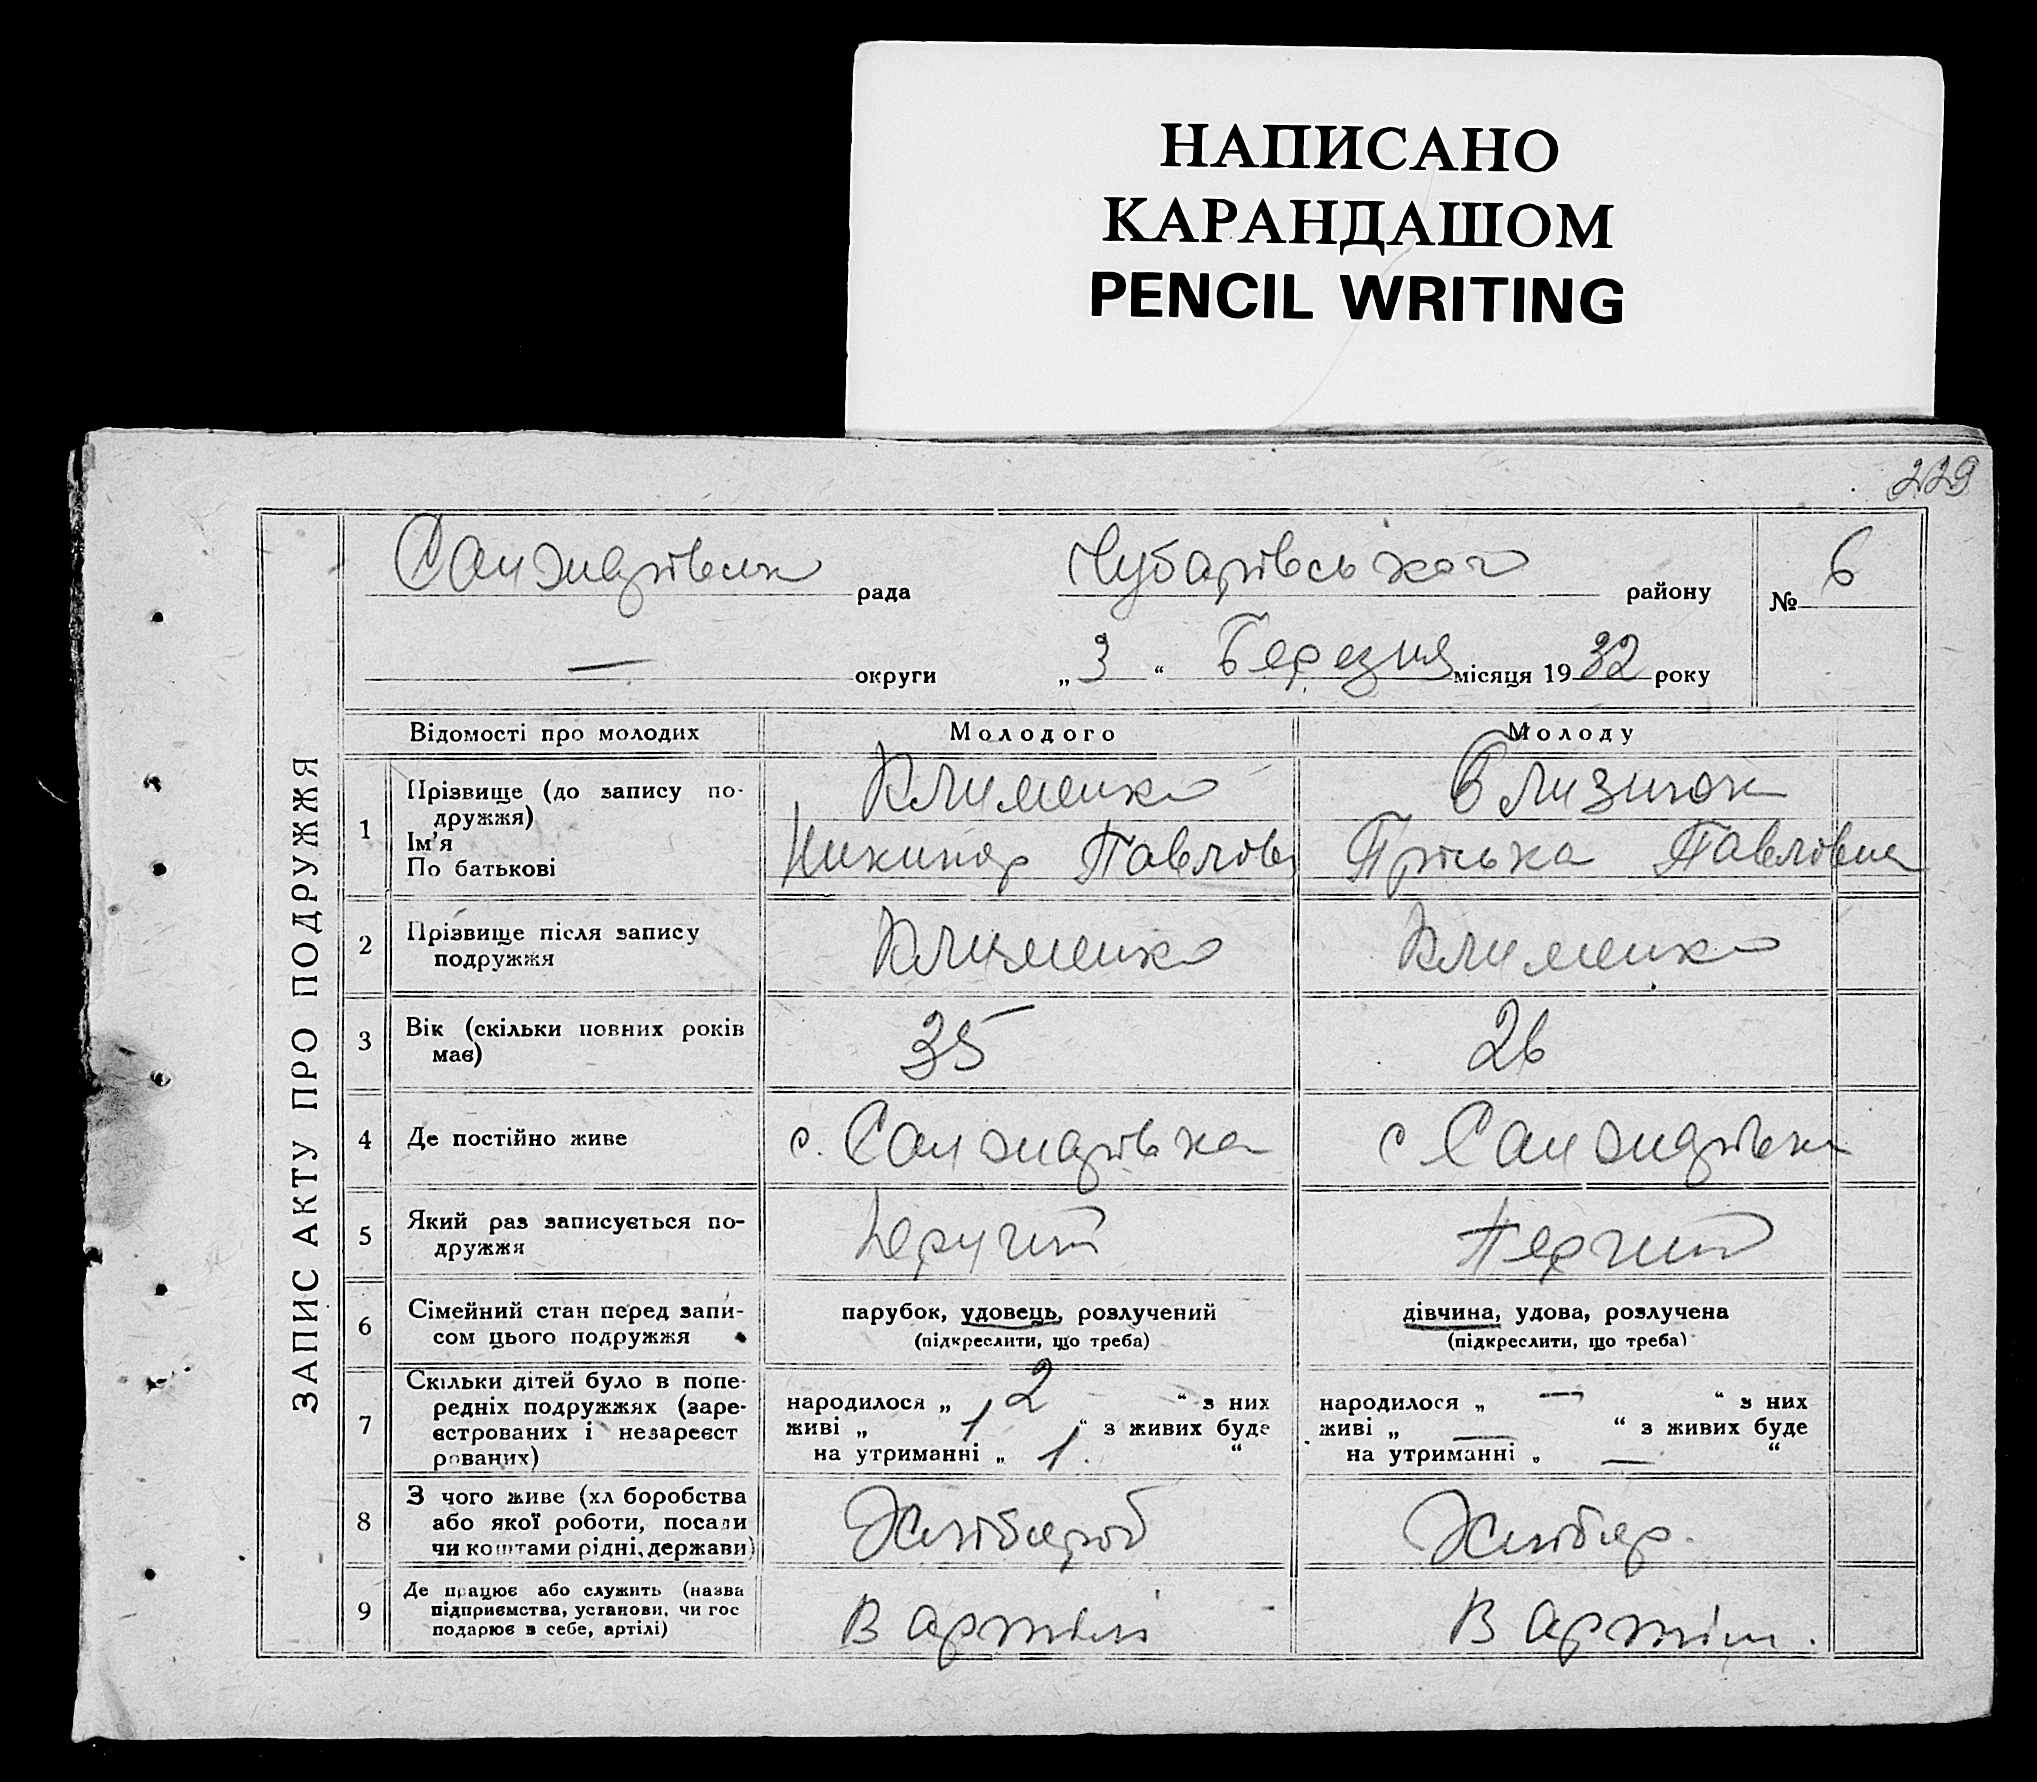 НАПИСАНО
КАРАНДАШОМ
PENCIL WRITING
229
ЗАПИС АКТУ ПРО ПОДРУЖЖЯ
Санжарівськ рада Чубарівського району № 6
— округи „ 3 “ Березня місяця 19 32 року
Відомості про молодих Молодого Молоду
1 Прізвище (до запису по-
дружжя)
Ім'я
По батькові
Клименко
Никипор Павлов
Близнюк
Пріська Павловна
2 Прізвище після запису
подружжя
Клименко Клименко
3 Вік (скільки повних років
має)
35 26
4 Де постійно живе с. Санжарівка с Санжарівка
5 Який раз записується по-
дружжя
Другий Перший
6 Сімейний стан перед запи-
сом цього подружжя
парубок, удовець, розлучений
(підкреслити, що треба)
дівчина, удова, розлучена
(підкреслити, що треба)
7 Скільки дітей було в попе-
редніх подружжях (заре-
єстрованих і незареєст
рованих)
народилося „ 2 “ з них
живі „ 1 “ з живих буде
на утриманні „ 1. “
народилося „ — “ з них
живі „ — “ з живих буде
на утриманні „ — “
8 З чого живе (хл боробства
або якої роботи, посади
чи коштами рідні, держави)
Хлібароб Хлібар.
9 Де працює або служить (назва
підприємства, установи, чи гос
подарює в себе, артілі)
В артілі В артіли.